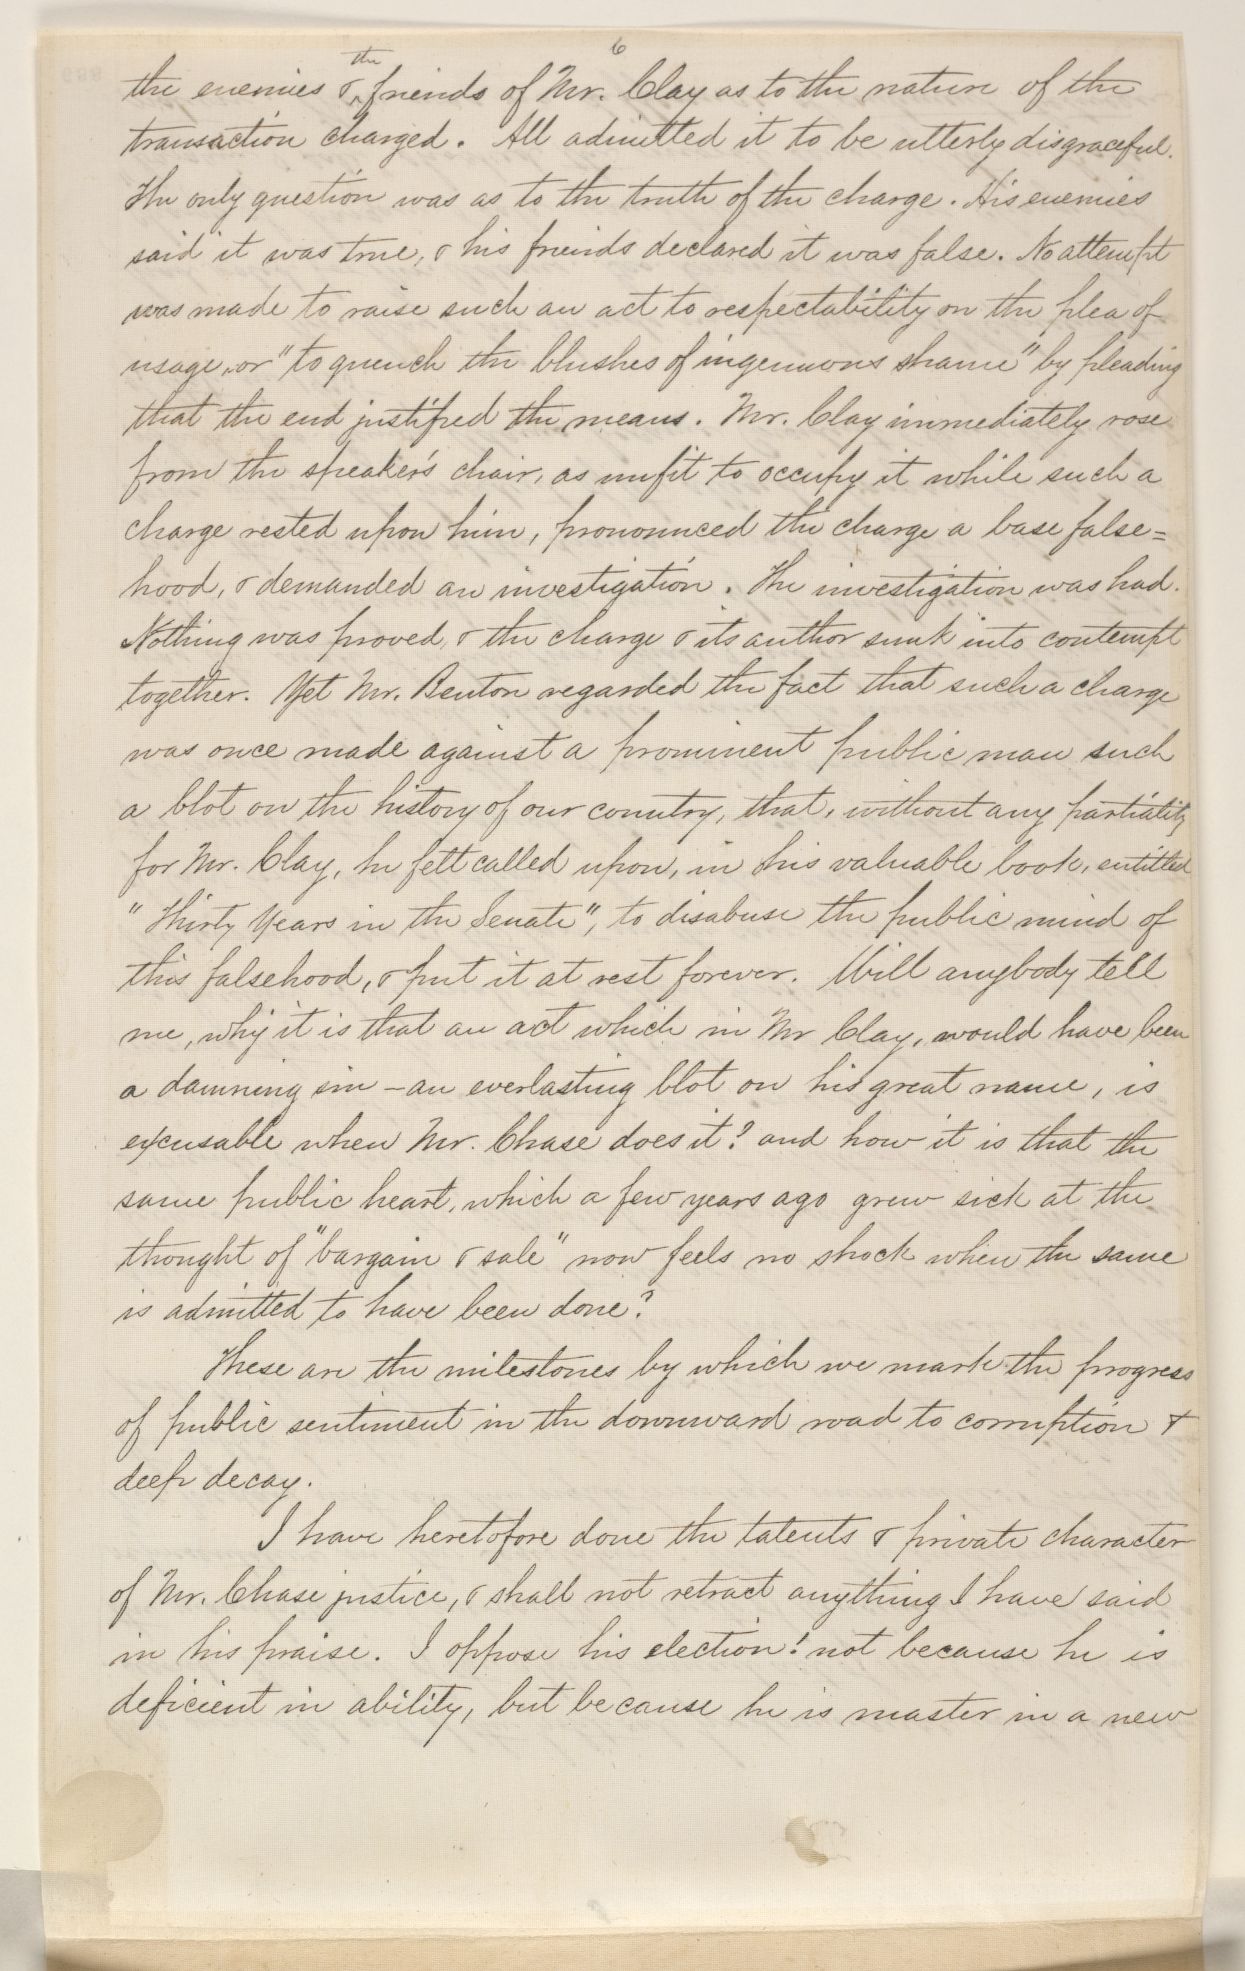 6
the enemies & the friends of Mr. Clay as to the nature of the
transaction charged. All admitted it to be utterly disgraceful.
The only question was as to the truth of the charge. His enemies
said it was true, & his friends declared it was false. No attempt
was made to raise such an act to respectability on the plea of
usage, or "to quench the blushes of ingenuous shame" by pleading
that the end justified the means. Mr. Clay immediately rose
from the speaker's chair, as unfit to occupy it while such a
charge rested upon him, pronounced the charge a base false=
hood, & demanded an investigation. The investigation was had.
Nothing was proved, & the charge & its author sunk into contempt
together. Yet Mr. Benton regarded the fact that such a charge
was once made against a prominent public man such
a blot on the history of our country, that, without any partiality
for Mr. Clay, he felt called upon, in his valuable book, entitled
"Thirty Years in the Senate", to disabuse the public mind of
this falsehood, & put it at rest forever. Will anybody tell
me, why it is that an act which in Mr Clay, would have been
a damning sin – an everlasting blot on his great name, is
excusable when Mr. Chase does it? and how it is that the
same public heart, which a few years ago grew sick at the
thought of "bargain & sale" now feels no shock when the same
is admitted to have been done?
These are the milestones by which we mark the progress
of public sentiment in the downward road to corruption &
deep decay.
I have heretofore done the talents & private character
of Mr. Chase justice, & shall not retract anything I have said
in his praise. I oppose his election! not because he is
deficient in ability, but because he is master in a new